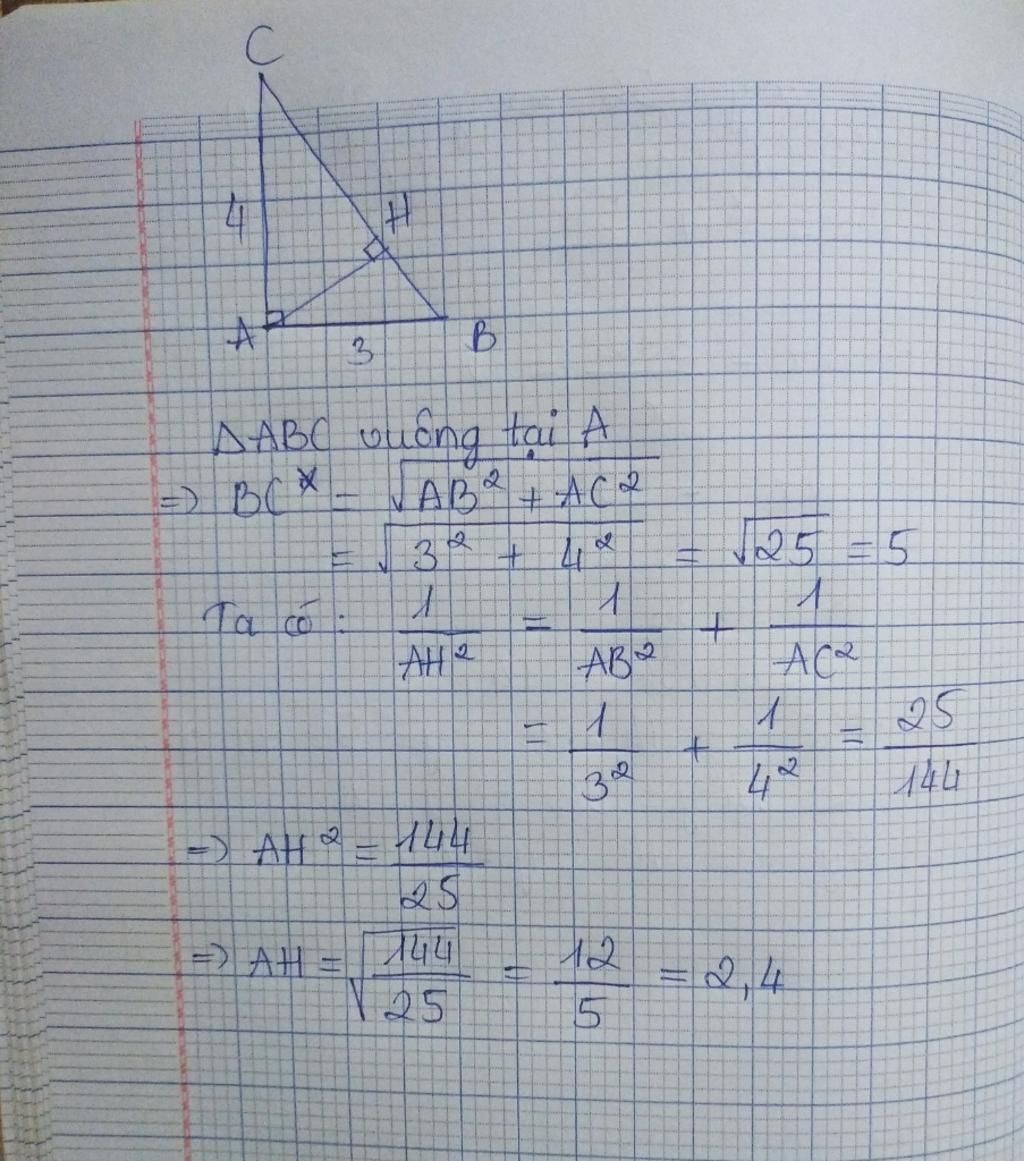 C
4
H
A
3
B
ΔABC vuông tại A
=> BC = √(AB² + AC²)
= √(3² + 4²) = √25 = 5
Ta có: 1/AH² = 1/AB² + 1/AC²
= 1/3² + 1/4² = 25/144
=> AH² = 144/25
=> AH = √(144/25) = 12/5 = 2,4